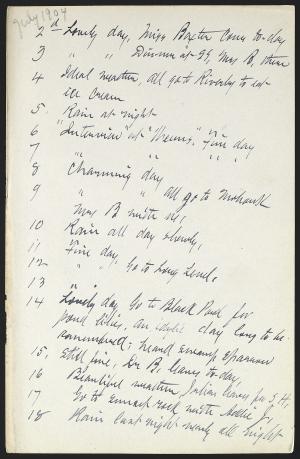 July 1904
2d Lovely day, Miss Baxter came to-day
3 " " Dinner at Mrs B. there
4 Ideal weather, all go to Riverby to eat
ice cream
5. Rain at night
6 "Interview" at " " Fine day
7 " " "
8 Charming day
9 " " all go to Mohonk
Mrs B with us.
10 Rain all day slowly,
11 Fine day,
12 " " Go to Long Level,
13 " "
14 Lovely day Go to Black Pond for
pond lilies, an day long to be
remembered; heard swamp sparrow
15, Still fine, Dr B. leaves to-day,
16 Beautiful weather, Julian leaves for S. H,
17 Go to rock with
18 Rain last night nearly all night